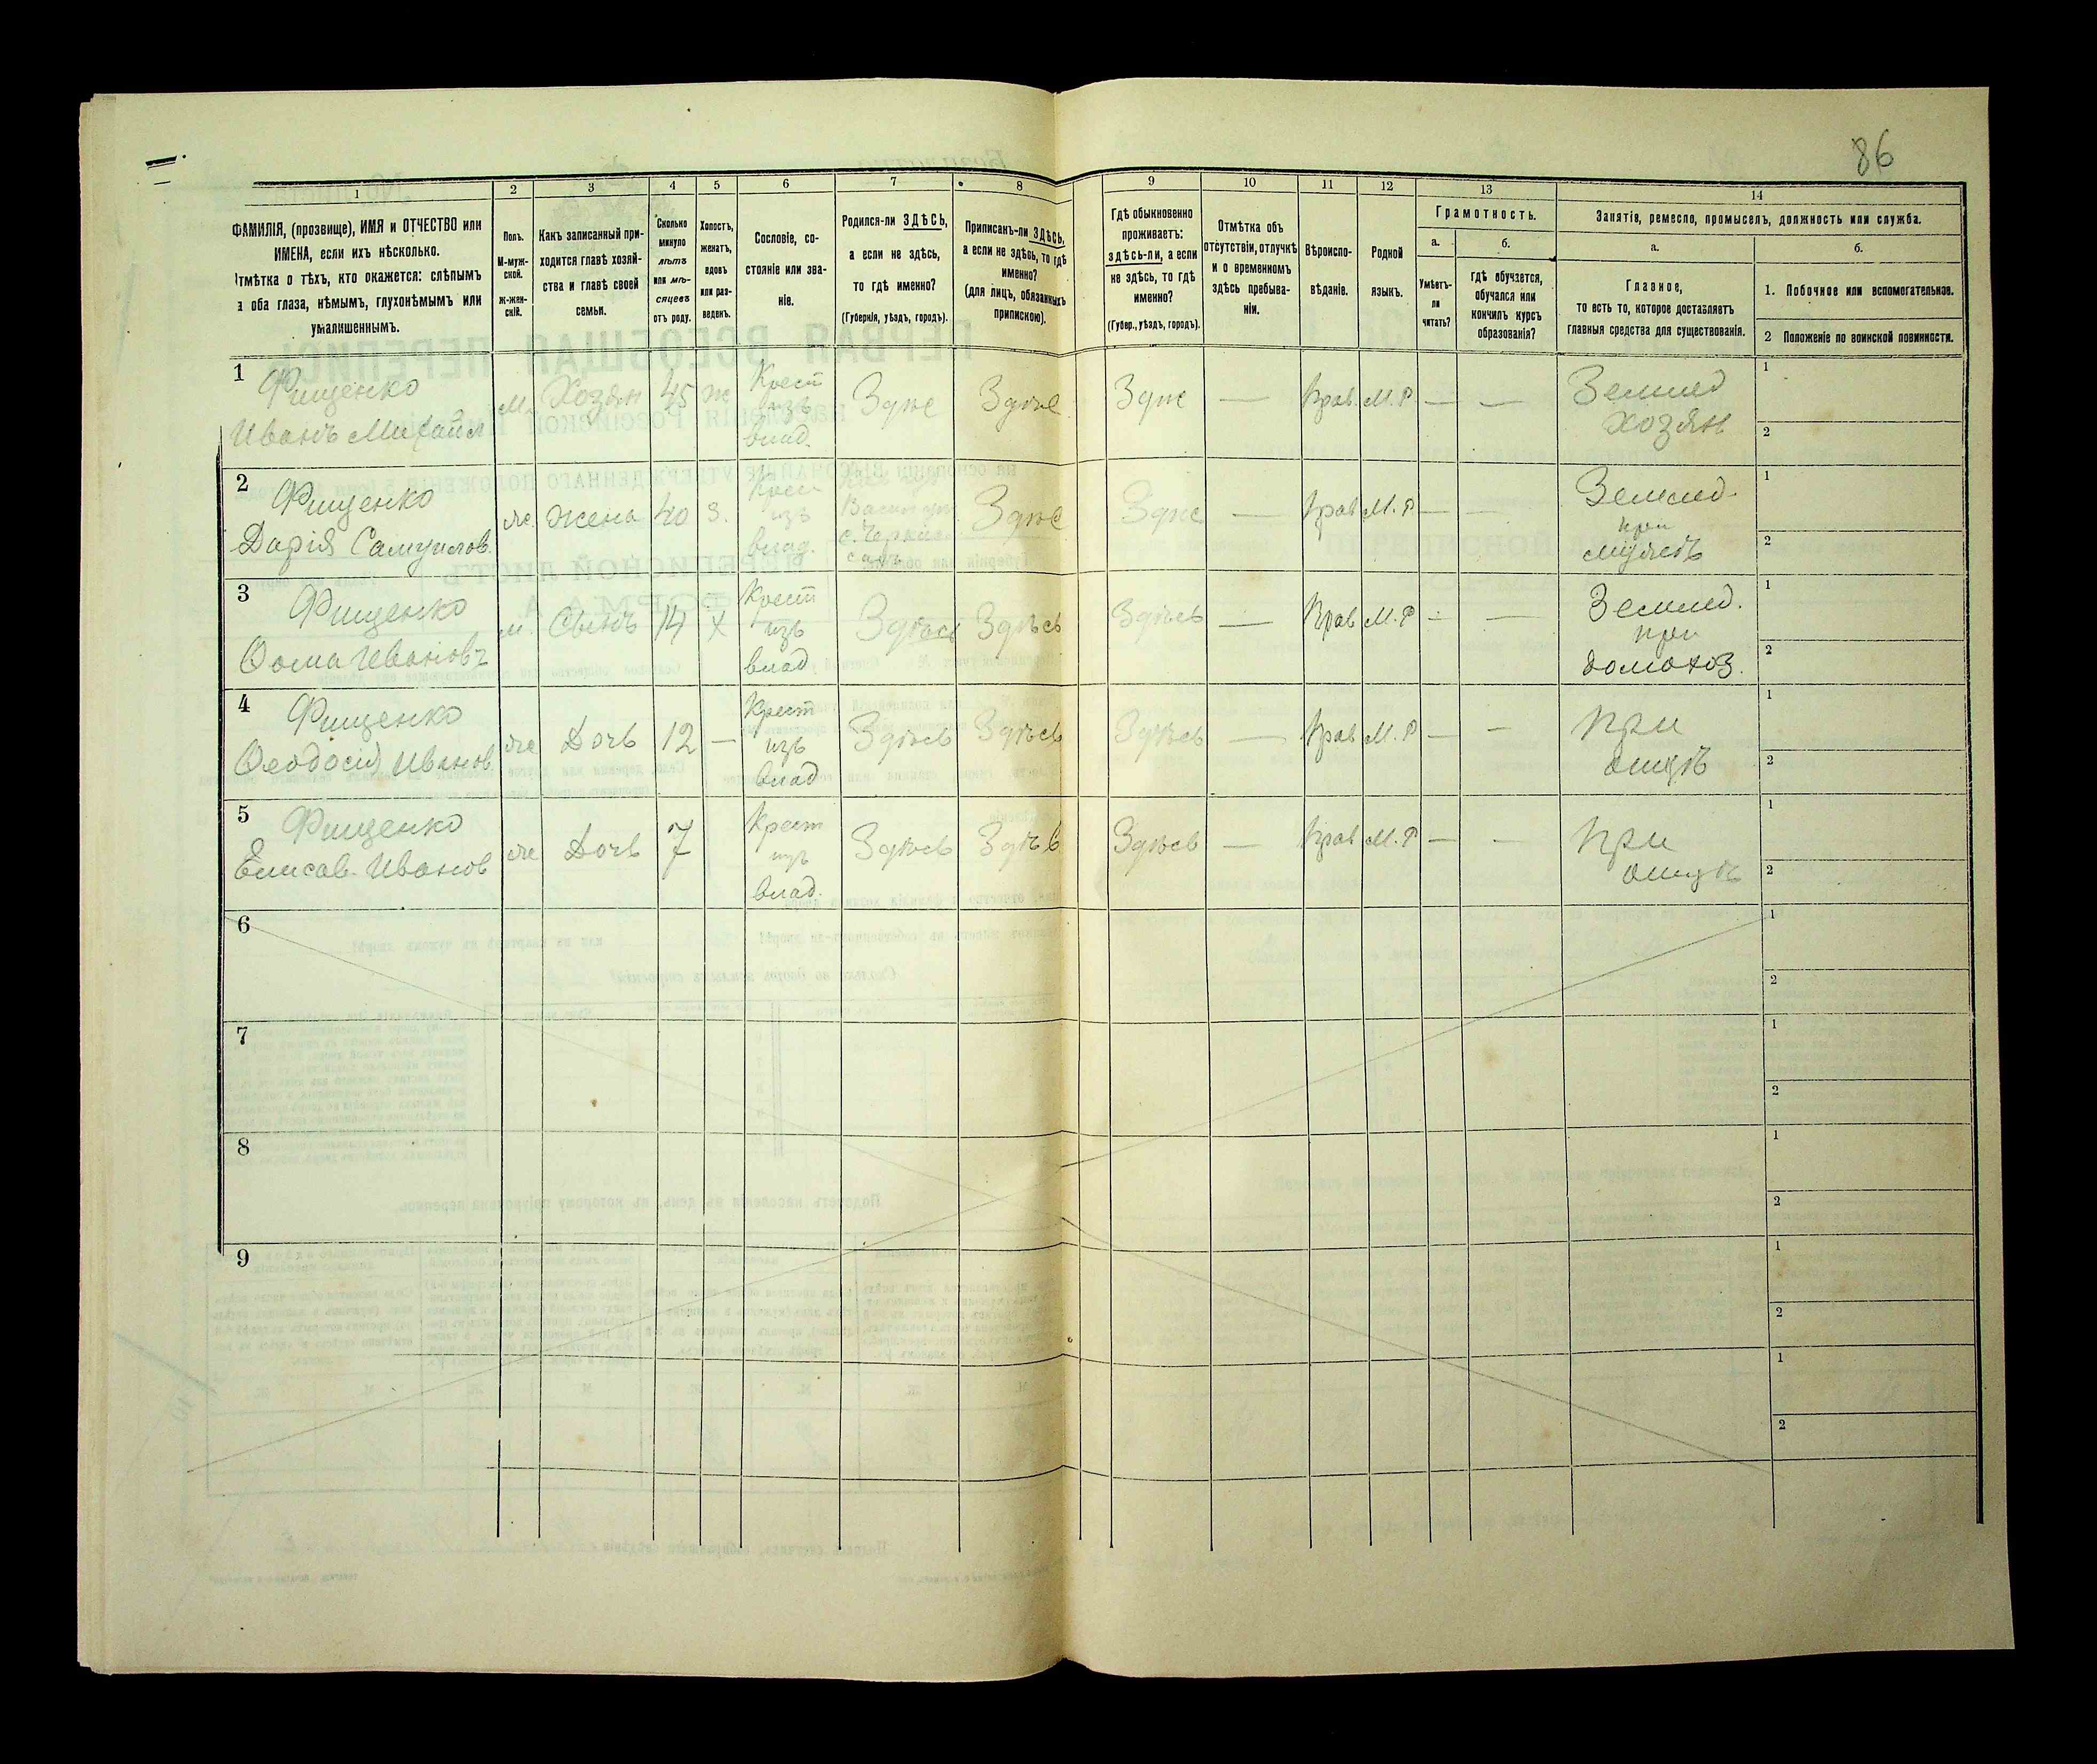 86
1 2 3 4 5 6 7 8 9 10 11 12 13 14
ФАМИЛІЯ, (прозвище), ИМЯ и ОТЧЕСТВО или
ИМЕНА, если ихъ нѣсколько.
Отмѣтка о тѣхъ, кто окажется: слѣпымъ
на оба глаза, нѣмымъ, глухонѣмымъ или
умалишеннымъ.
Полъ.
М-муж-
ской.
Ж-жен-
скій.
Какъ записанный при-
ходится главѣ хозяй-
ства и главѣ своей
семьи.
Сколько
минуло
лѣтъ
или мѣ-
сяцевъ
отъ роду.
Холостъ,
женатъ,
вдовъ
или раз-
веденъ.
Сословіе, со-
стояніе или зва-
ніе.
Родился-ли ЗДѢСЬ,
а если не здѣсь,
то гдѣ именно?
(Губернія, уѣздъ, городъ).
Приписанъ-ли ЗДѢСЬ,
а если не здѣсь, то гдѣ
именно?
(для лицъ, обязанныхъ
припискою).
Гдѣ обыкновенно
проживаетъ:
здѣсь-ли, а если
не здѣсь, то гдѣ
именно?
(Губер., уѣздъ, городъ).
Отмѣтка объ
отсутствіи, отлучкѣ
и о временномъ
здѣсь пребыва-
ніи.
Вѣроиспо-
вѣданіе.
Родной
языкъ.
Грамотность.
а. б.
Умѣетъ-
ли
читать?
гдѣ обучается,
обучался или
кончилъ курсъ
образованія?
Занятіе, ремесло, промыселъ, должность или служба.
а. б.
Главное,
то есть то, которое доставляетъ
главныя средства для существованія.
1. Побочное или вспомогательное.
2 Положеніе по воинской повинности.
1
Фищенко
Иванъ Михайл
м. Хозян 45 ж
Крест
изъ
влад.
Здѣс Здѣс Здѣс — Прав. М. Р — —
Землед
хозян
1
2
2
Фищенко
Дарія Самуилов.
же. жена 40 з.
Крест
изъ
влад.
Здѣс Здѣс — Прав М. Р — —
Землед.
при
мужѣ
1
2
3
Фищенко
Ѳома Ивановъ
м. Сынъ 14 х
Крест
изъ
влад
Здѣсь Здѣсь Здѣсь — Прав М. Р — —
Землед.
при
домохоз.
1
2
4
Фищенко
Ѳеодосія Иванов
же Дочь 12 —
Крест
изъ
влад
Здѣсь Здѣсь Здѣсь — Прав М. Р — —
При
отцѣ
1
2
5
Фищенко
Елисав. Иванов
же Дочь 7
Крест
изъ
влад.
Здѣсь Здѣсь Здѣсь — Прав М. Р — —
При
отцѣ
1
2
6
1
2
7
1
2
8
1
2
9
1
2
1
2